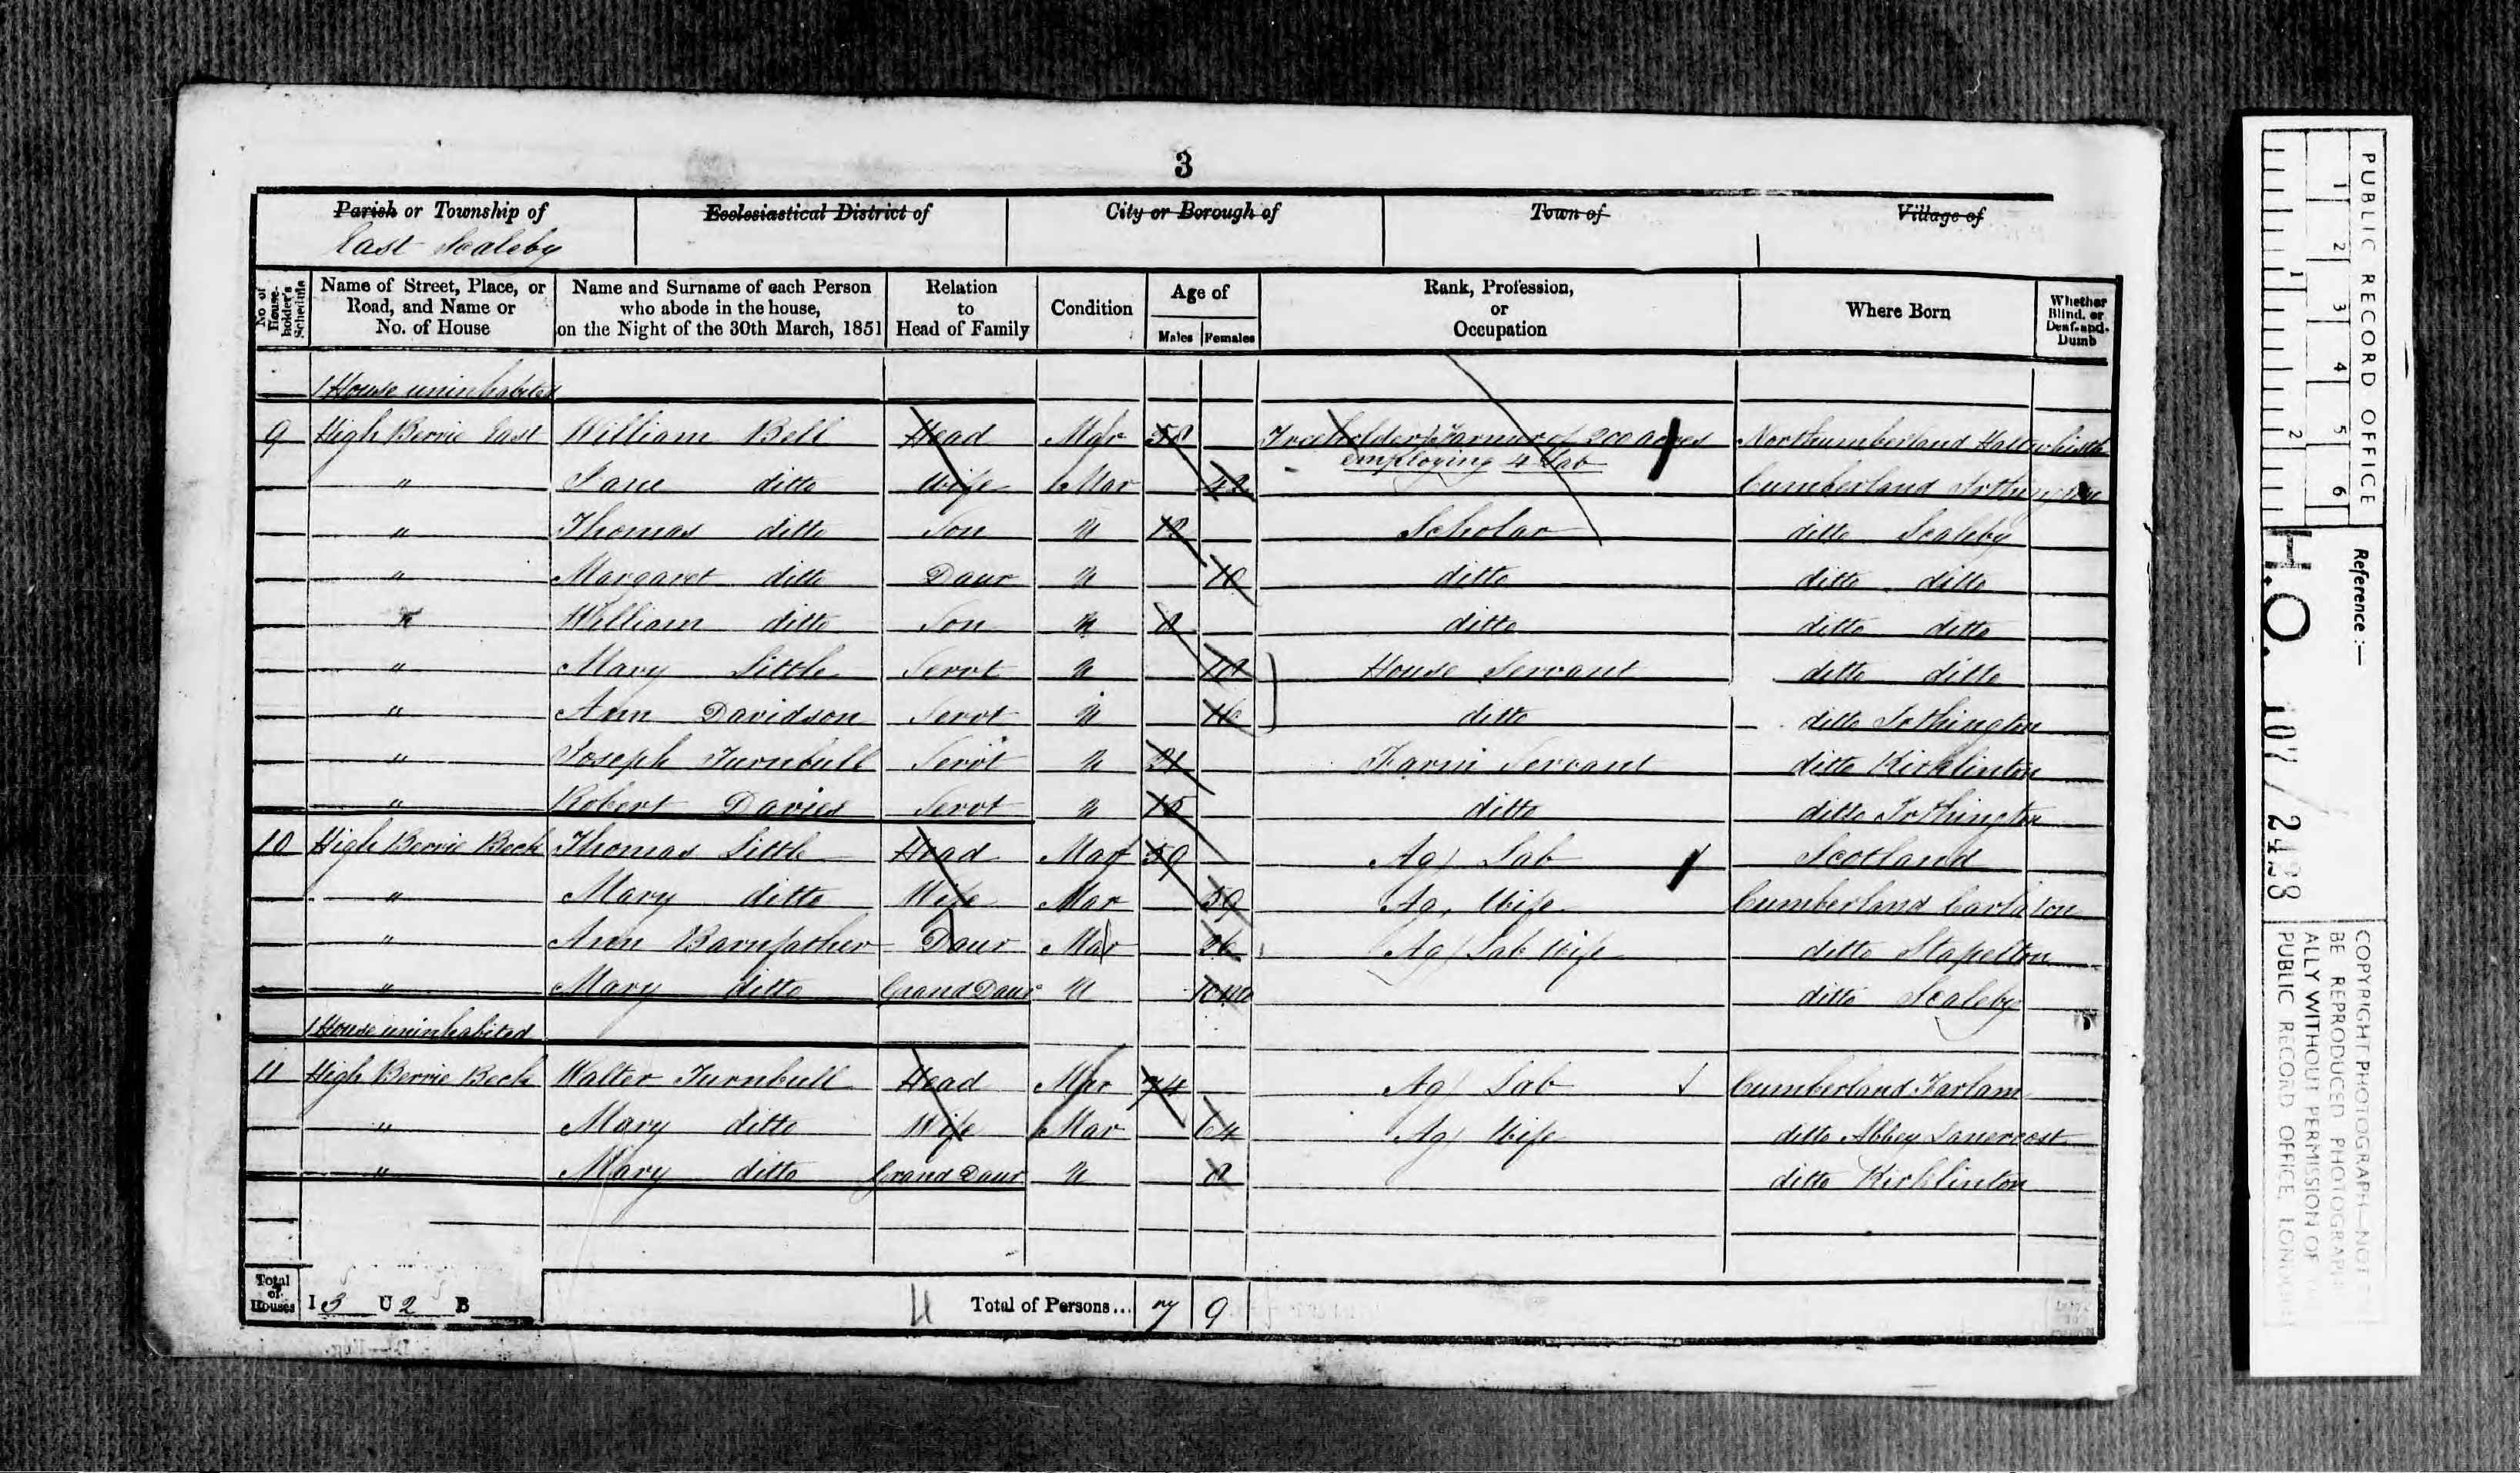 3
Parish or Township of Ecclesiastical District of City or Borough of Town of Village of
East Scaleby
No of House-holder's Schedule Name of Street, Place, or Road, and Name or No. of House Name and Surname of each Person who abode in the house, on the Night of the 30th March, 1851 Relation to Head of Family Condition Age of Males Females Rank, Profession, or Occupation Where Born Whether Blind, or Deaf-and-Dumb
1 House uninhabited
9 High Berrie East William Bell Head Mar 58 Freeholder Farmer of 200 acres Northumberland Haltwhistle
employing 4 Lab
" Jane ditto Wife Mar 42 Cumberland Irthington
" Thomas ditto Son U 12 Scholar ditto Scaleby
" Margaret ditto Daur U 10 ditto ditto ditto
" William ditto Son U 8 ditto ditto ditto
" Mary Little Servt U 18 House Servant ditto ditto
" Ann Davidson Servt U 16 ditto ditto Irthington
" Joseph Turnbull Servt U 21 Farm Servant ditto Kirklinton
" Robert Davies Servt U 15 ditto ditto Irthington
10 High Berrie Beck Thomas Little Head Mar 59 Ag Lab Scotland
" Mary ditto Wife Mar 59 Ag. Wife Cumberland Carlaton
" Ann Barnfather Daur Mar 26 Ag Lab Wife ditto Stapelton
" Mary ditto Grand Daur U ditto Scaleby
1 House uninhabited
11 High Berrie Beck Walter Turnbull Head Mar 74 Ag Lab Cumberland Farlam
" Mary ditto Wife Mar 64 Ag Wife ditto Abbey Lanercost
" Mary ditto Grand Daur U 8 ditto Kirklinton
Total of Houses I 3 U 2 B Total of Persons... 7 9
PUBLIC RECORD OFFICE
1 2 3 4 5 6
1 2
Reference :—
H.O. 107/2438
COPYRIGHT PHOTOGRAPH—NOT TO
BE REPRODUCED PHOTOGRAPHIC-
ALLY WITHOUT PERMISSION OF THE
PUBLIC RECORD OFFICE, LONDON